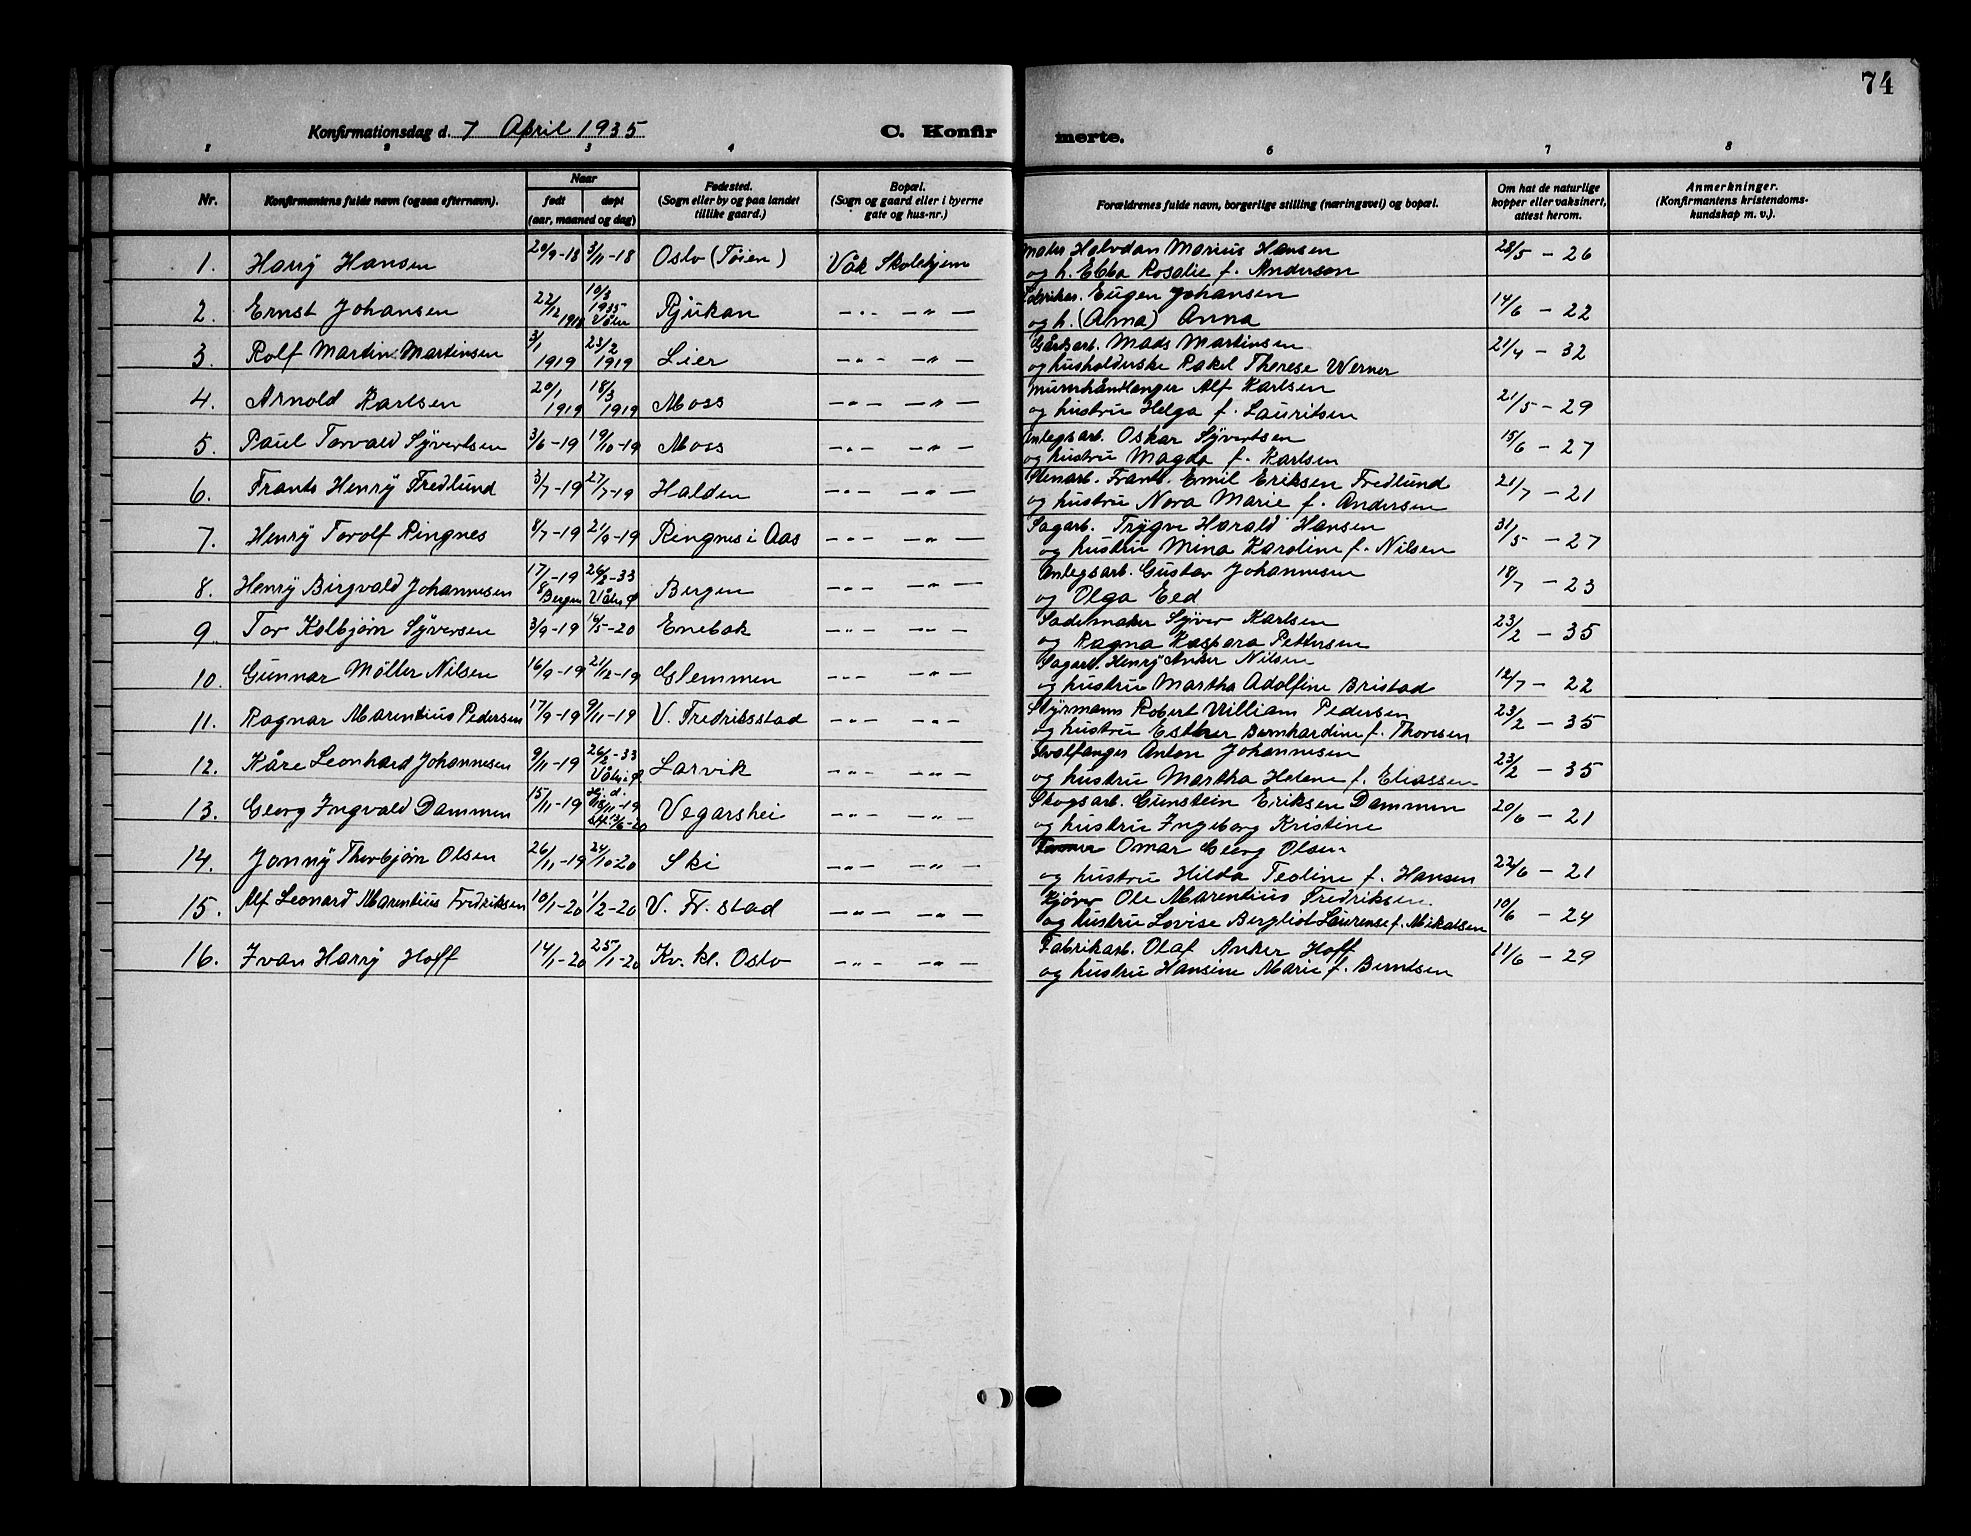 74
Konfirmationsdag d. 7 April 1935 C. Konfirmerte.
1 2 3 4 6 7 8
Nr. Konfirmantens fulde navn (ogsaa efternavn). Naar født døpt (aar, maaned og dag) Fødested. (Sogn eller by og paa landet tillike gaard.) Bopæl. (Sogn og gaard eller i byerne gate og hus-nr.) Forældrenes fulde navn, borgerlige stilling (næringsvei) og bopæl. Om hat de naturlige kopper eller vaksinert, attest herom. Anmerkninger. (Konfirmantens kristendomskundskap m. v.).
1. Harry Hansen 20/9-18 3/11-18 Oslo (Tøien) Våk Skolehjem Maler Halvdan Marius Hansen 28/5 - 26
og h. Ebba Rosalie f. Anderson
2. Ernst Johansen 22/12 1918 10/3 1935 Våler Rjukan -"- -"- Fabrikar. Eugen Johansen 14/6 - 22
og h. (Alma) Anna
3. Rolf Martin Martinsen 3/1 1919 23/2 1919 Lier -"- -"- Gårdsarb. Mads Martinsen 21/4 - 32
og husholderske Rakel Therese Werner
4. Arnold Karlsen 20/1 1919 18/3 1919 Moss -"- -"- Murerhåndlanger Alf Karlsen 21/5 - 29
og hustru Helga f. Lauritsen
5. Paul Torvald Syvertsen 3/6-19 19/10-19 Moss -"- -"- Anlegsarb. Oskar Syvertsen 15/6 - 27
og hustru Magda f. Karlsen
6. Frants Henry Fredlund 3/7-19 27/7-19 Halden -"- -"- Stenarb. Frant. Emil Eriksen Fredlund 21/7 - 21
og hustru Nora Marie f. Andersen
7. Henry Torolf Ringnes 8/7-19 21/9-19 Ringnes i Aas -"- -"- Sagarb. Trygve Harald Hansen 31/5 - 27
og hustru Mina Karoline f. Nilsen
8. Henry Birgvald Johannesen 17/8-19 Bergen 26/2-33 Våler Ø Bergen -"- -"- Anlegsarb. Gustav Johannesen 18/7 - 23
og Olga Eed
9. Tor Kolbjørn Syversen 3/9-19 16/5-20 Enebak -"- -"- Sadelmaker Syver Karlsen 23/2 - 35
og Ragna Kaspara Pettersen
10. Gunnar Möller Nilsen 16/9-19 21/12-19 Glemmen -"- -"- Sagarb. Henry Anker Nilsen 12/7 - 22
og hustru Martha Adolfine Bristad
11. Ragnar Marentius Pedersen 17/9-19 9/11-19 V. Fredriksstad -"- -"- Styrmann Robert William Pedersen 23/2 - 35
og hustru Esther Bernhardine f. Thoresen
12. Kåre Leonhard Johannesen 9/11-19 26/2-33 Våler i Ø Larvik -"- -"- Hvalfanger Anton Johannesen 23/2 - 35
og hustru Martha Helene f. Eliassen
13. Georg Ingvald Dammen 15/11-19 Hj. d. 18/11-19 st. 13/6-20 Vegarshei -"- -"- Skogsarb. Gunstein Eriksen Dammen 20/6 - 21
og hustru Ingeborg Kristine
14. Jonny Thorbjørn Olsen 26/11-19 24/10-20 Ski -"- -"- Omar Georg Olsen 22/6 - 21
og hustru Hilda Teoline f. Hansen
15. Alf Leonard Marentius Fredriksen 10/1-20 1/2-20 V. Fr. stad -"- -"- Kjører Ole Marentius Fredriksen 10/6 - 24
og hustru Lovise Bergliot Laurense f. Mikalsen
16. Ivan Harry Hoff 14/1-20 25/1-20 Kv. kl. Oslo -"- -"- Fabrikarb. Olaf Anker Hoff 11/6 - 29
og hustru Hansine Marie f. Berntsen